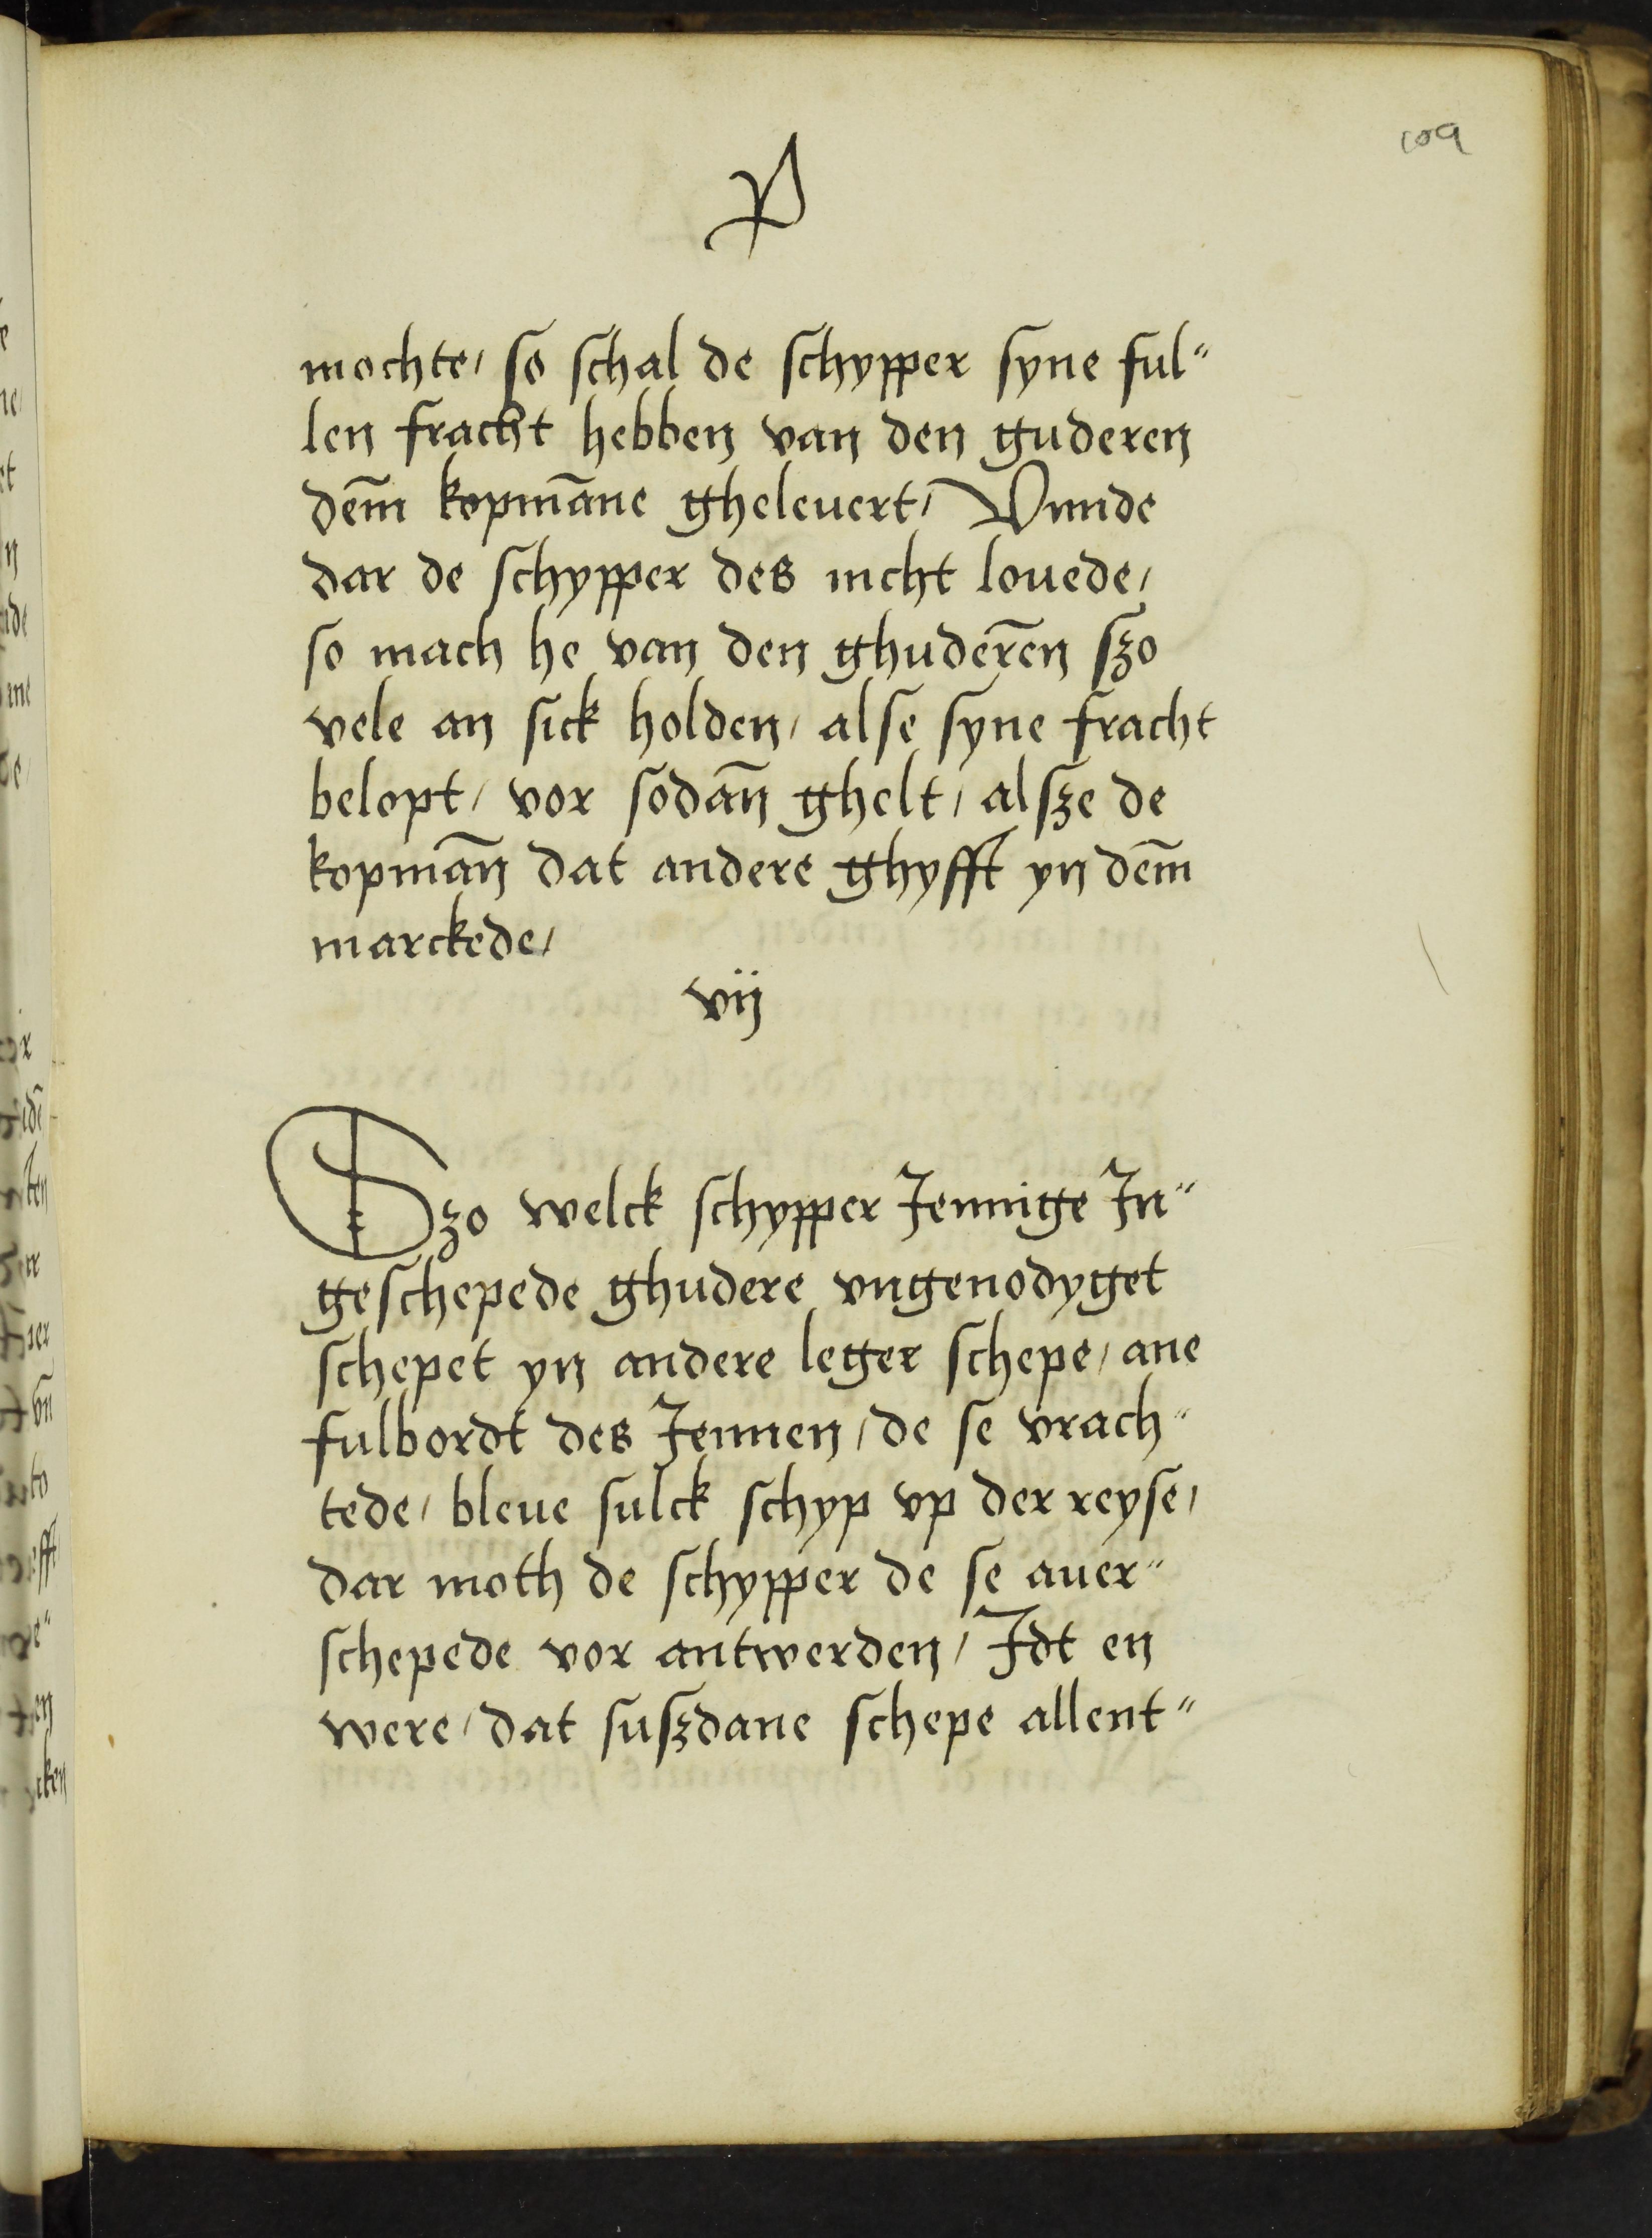 109
P
mochte, so schal de schypper syne ful"
len fracht hebben van den guderen
dem̄ kopmāne gheleuert, Vnnde
dar de schypper des nicht louede,
so mach he van den ghudere̅n szo
vele an sick holden, alse syne fracht
belopt, vor sodan̄ ghelt, alsze de
kopman̄ dat andere ghyfft yn dem̄
marckede,
vij
Szo welck schypper Jennige In"
geschepede ghudere vngenodyget
schepet yn andere leger schepe, ane
fulbordt des Jennen, de se vrach"
tede, bleue sulck schyp vp der reyse,
dar moth de schypper de se auer"
schepede vor antwerden, Idt en
were, dat suszdane schepe allent"